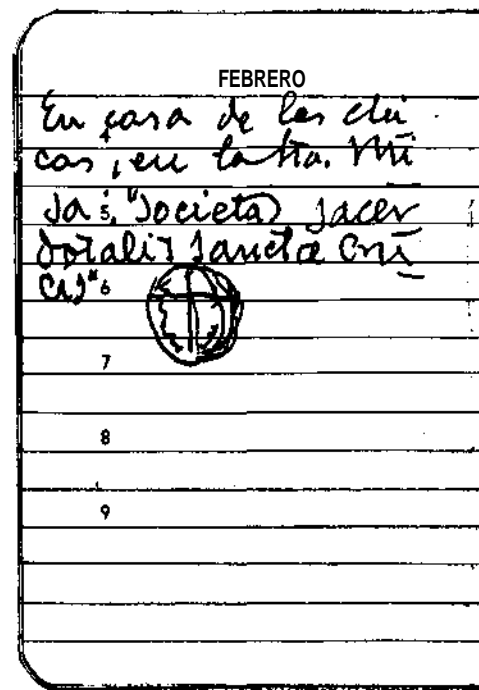 FEBRERO
En casa de las chi
cas, en la Sta. Mi
sa: 5 "Societas Sacer
dotalis Sanctæ Cru
cis" 6
7
8
9